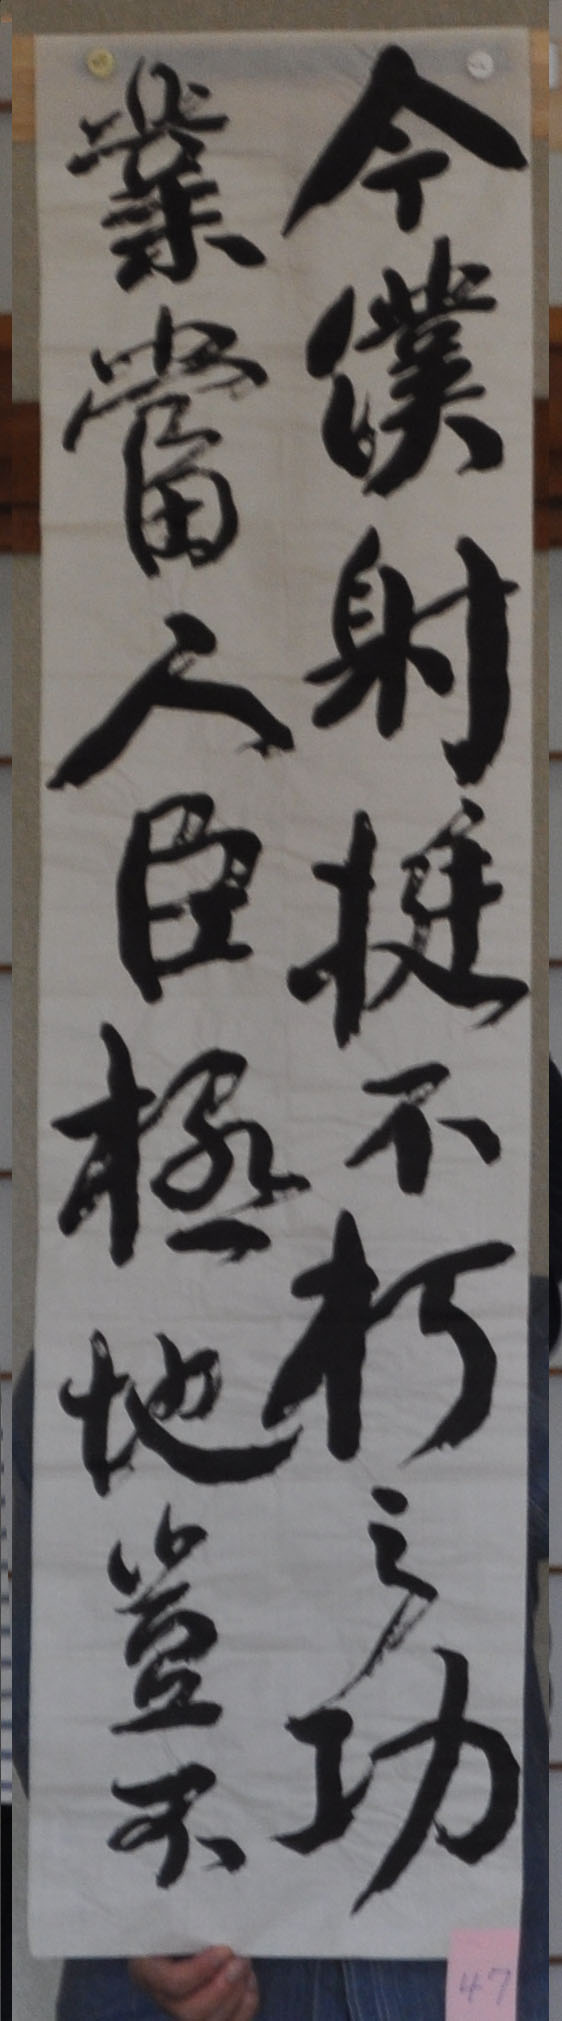 今僕射挺不朽之功
業當人臣極地豈不
47